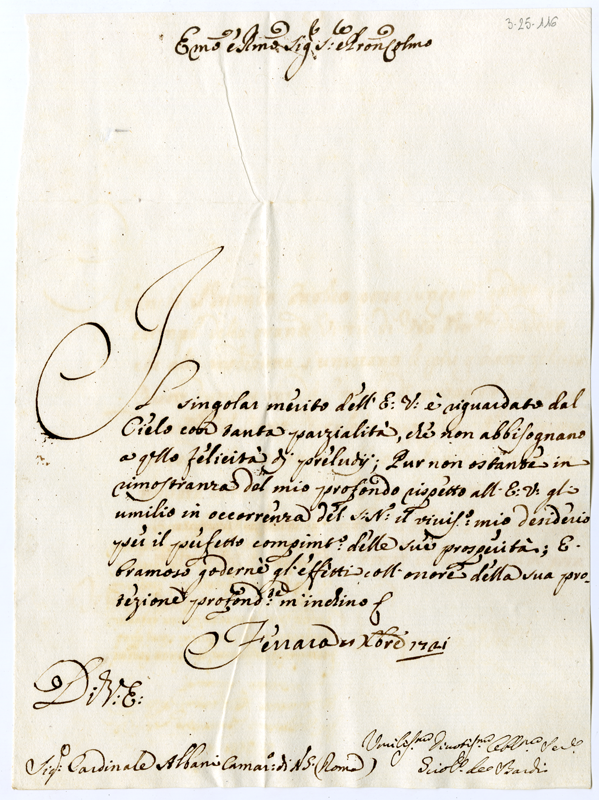 3-25-116
Emo e Rmo Sigr Sr e Pron Colmo
Il singolar merito dell' E: V: è riguardato dal
Cielo con tanta parzialità, che non abbisognano
a qsto felicità di preludij; Pur non ostante in
rimostranza del mio profondo rispetto all' E: V: gl'
umilio in occorrenza del S: N: il vivis:o mio desiderio
per il perfetto compimto delle sue prosperità; E
bramoso goderne gl' effetti coll' onore della sua pro-
tezione profond:te m' inchino
Ferrara Xbre 1721
Di V: E:
Umilissmo Devotissmo Obblmo Serv
Sigr Cardinale Albani Camar: di N: S: (Roma)
de Bardi